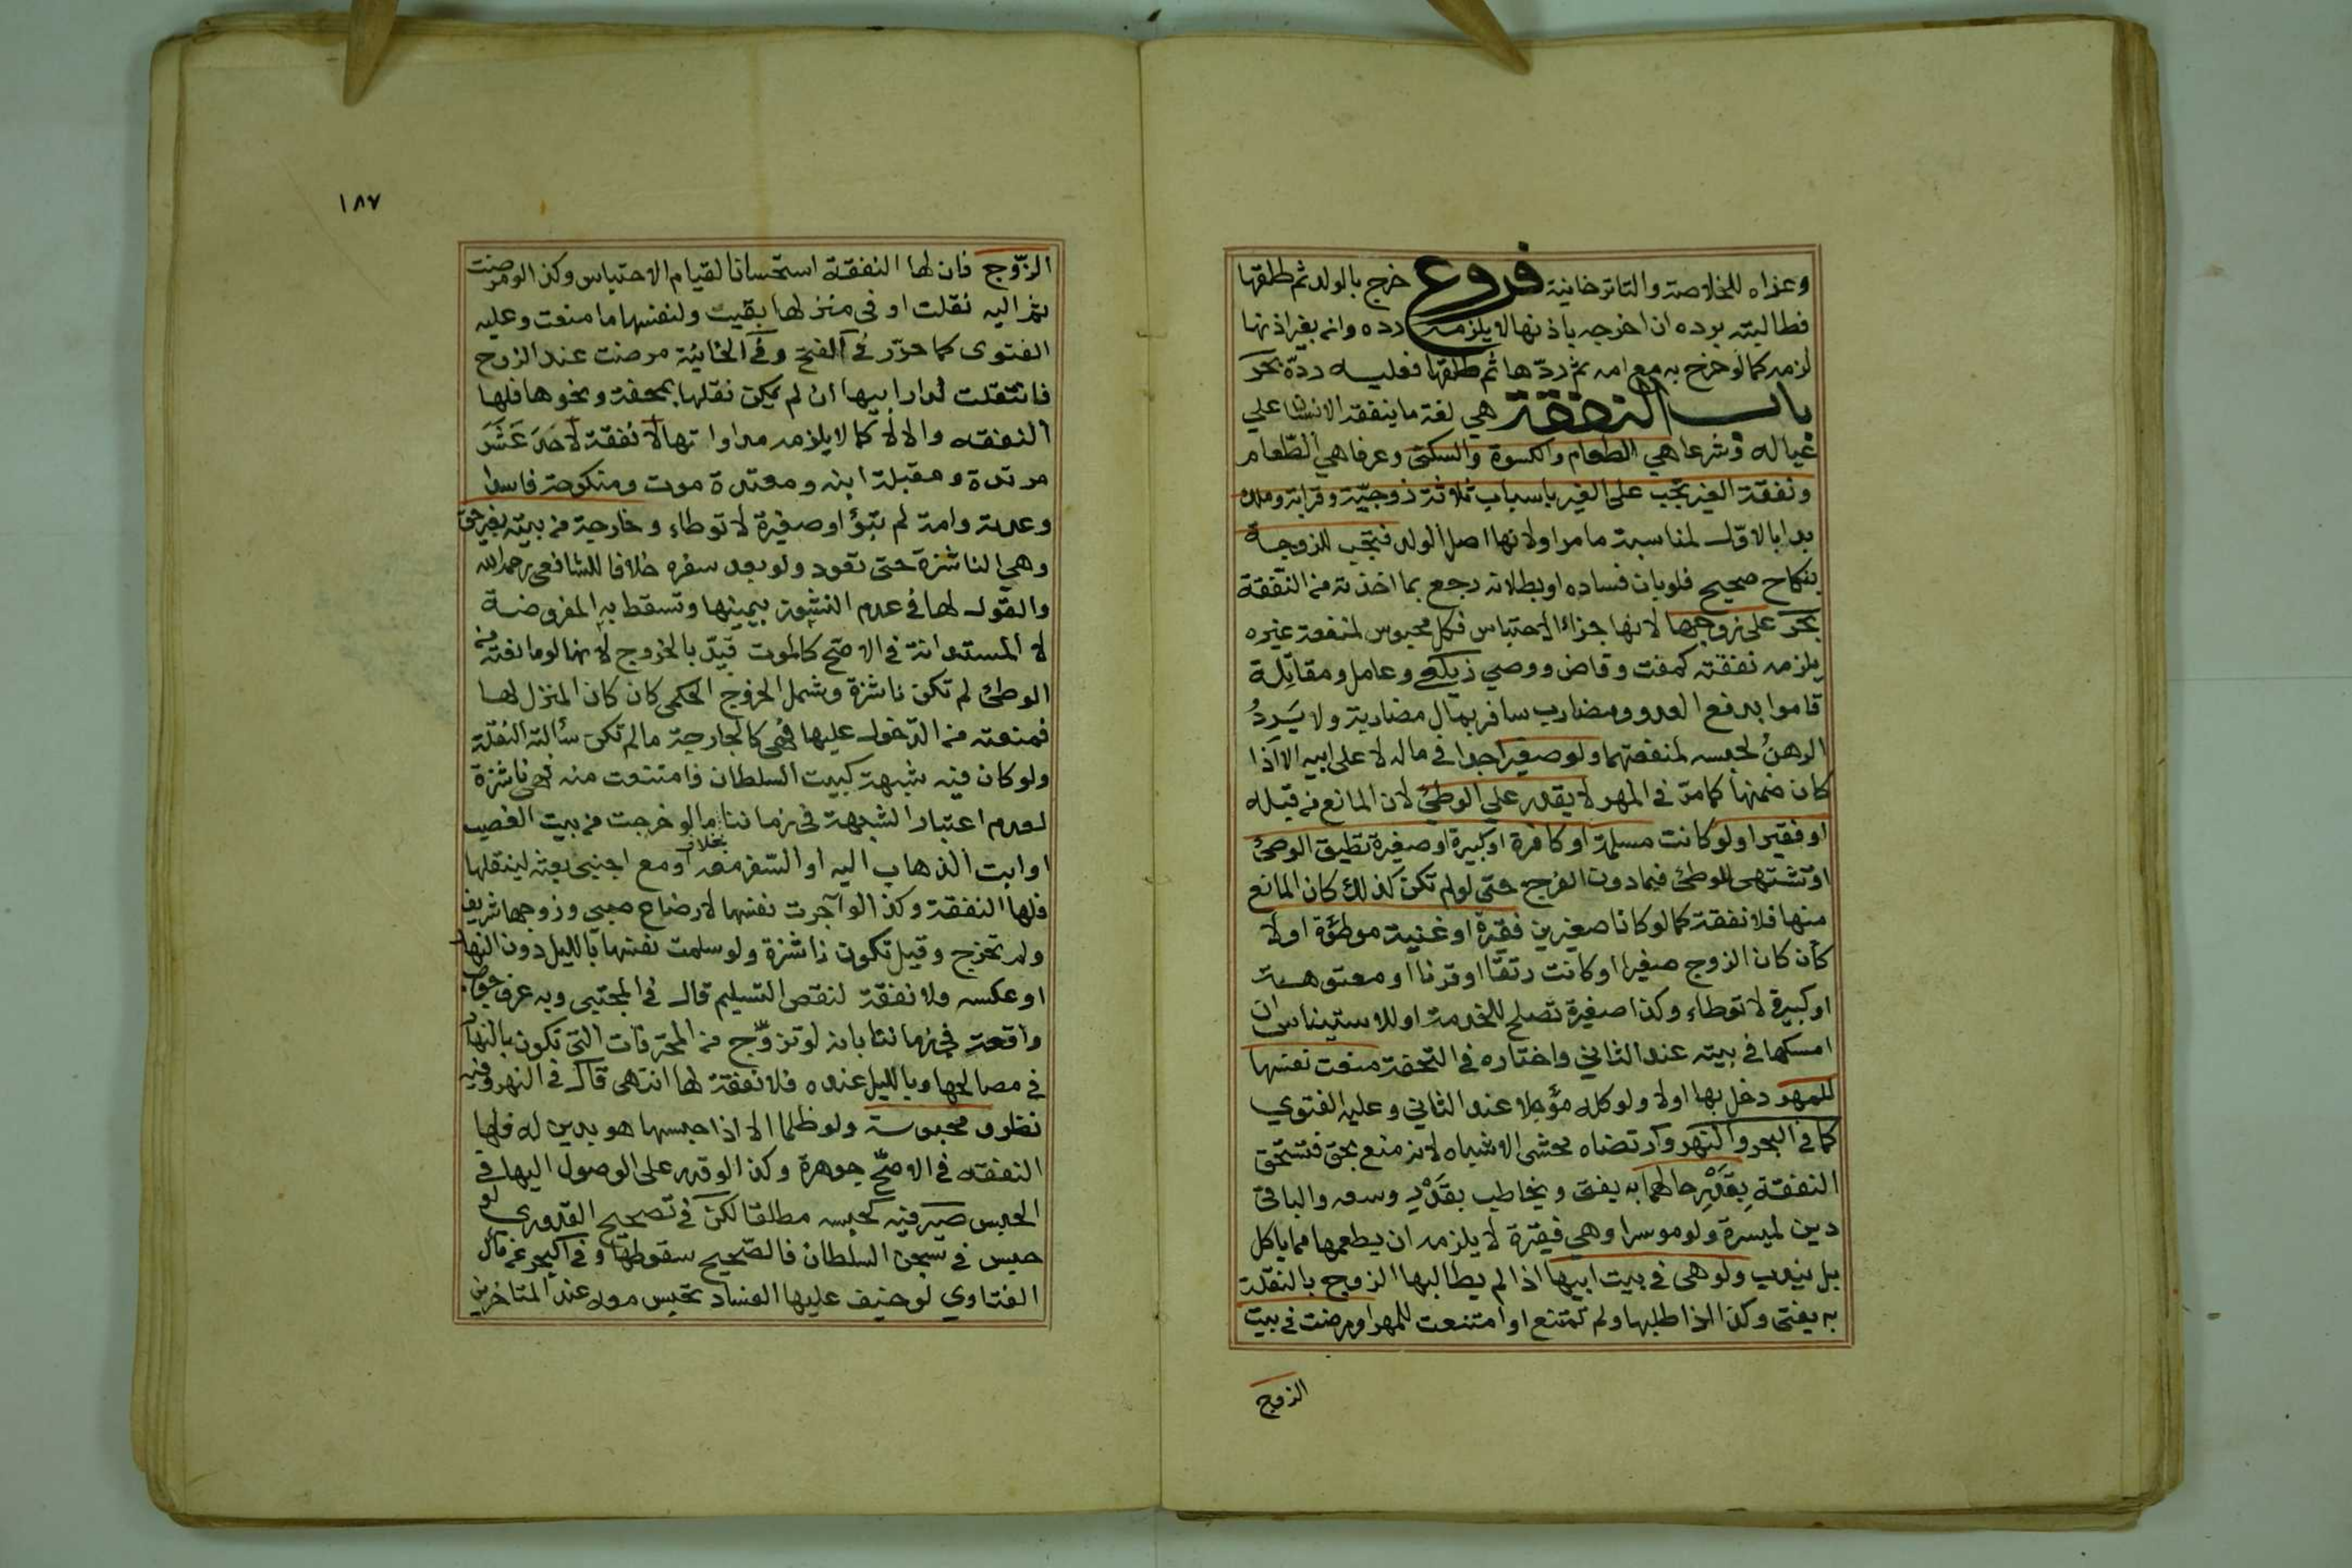 وعزاه للخلاصة والتاترخانية فروع خرج بالولد ثم طلقها
فطالبته برده ان اخرجه باذنها لا يلزمه رده وان بغير اذنها
لزمه كما لو خرج به مع امه ثم ردها ثم طلقها فعليه رده بحر
باب النفقة هي لغة ما ينفقه الانسان علي
عياله وشرعا هي الطعام والكسوة والسكنى وعرفا هي الطعام
ونفقة الغير تجب على الغير باسباب ثلاثة زوجية وقرابة وملك
بدا بالاول لمناسبة ما مر او لانها اصل الولد فتجب للزوجة
بنكاح صحيح فلو بان فساده او بطلانه رجع بما اخذته من النفقة
بحر على زوجها لانها جزاء الاحتباس فكل محبوس لمنفعة غيره
يلزمه نفقته كمفت وقاض ووصي زيلعي وعامل ومقاتلة
قاموا بدفع العدو ومضارب سافر بمال مضاربة ولا يرد
الرهن لحبسه لمنفعتهما ولو صغيرا جدا في ماله لا على ابيه الا اذا
كان ضمنها كما مر في المهر لا يقدر علي الوطئ لان المانع من قبله
او فقيرا ولو كانت مسلمة او كافرة او كبيرة او صغيرة تطيق الوطئ
او تشتهى للوطئ فيما دون الفرج حتى لو لم تكن كذلك كان المانع
منها فلا نفقة كما لو كانا صغيرين فقيرة او غنية موطؤة او لا
كأن كان الزوج صغيرا او كانت رتقا او قرنا او معتوهة
او كبيرة لا توطاء وكذا صغيرة تصلح للخدمة او للاستيناس ان
امسكها في بيته عند الثاني واختاره في التحفة منعت نفسها
للمهر دخل بها اولا ولو كله مؤجلا عند الثاني وعليه الفتوي
كما في البحر والنهر وارتضاه محشى الاشباه لانه منع بحق فتستحق
النفقة بقدر حالهما به يفتى ويخاطب بقدر وسعه والباقي
دين لميسرة ولو موسرا وهي فقيرة لا يلزمه ان يطعمها مما ياكل
بل يندب ولو هى في بيت ابيها اذا لم يطالبها الزوج بالنقلة
به يفتى وكذا اذا طلبها ولم تمتنع او امتنعت للمهر او مرضت في بيت
الزوج
١٨٧
الزوج فان لها النفقة استحسانا لقيام الاحتباس وكذا لو مرضت
ثم اليه نقلت او في منزلها بقيت ولنفسها ما منعت وعليه
الفتوى كما حرر في الفتح وفي الخانية مرضت عند الزوج
فانتقلت لدار ابيها ان لم يمكن نقلها بمحفة ونحوها فلها
النفقه والا لا كما لا يلزمه مداواتها لا نفقة لاحد عشر
مرتدة ومقبلة ابنه ومعتدة موت ومنكوحة فاسدا
وعدته وامة لم تبؤ او صغيرة لا توطاء وخارجة من بيته بغير حق
وهي الناشزة حتى تعود ولو بعد سفره خلافا للشافعي رحمه الله
والقول لها في عدم النشوز بيمينها وتسقط به المفروضة
لا المستدانة في الاصح كالموت قيد بالخروج لانها لو مانعته من
الوطئ لم تكن ناشزة وشمل الخروج الحكمي كان كان المنزل لها
فمنعته من الدخول عليها فهي كالخارجة ما لم تكن سألته النقلة
ولو كان فيه شبهة كبيت السلطان فامتنعت منه فهي ناشزة
لعدم اعتبار الشبهة في زماننا بخلاف ما لو خرجت من بيت الغصب
او ابت الذهاب اليه او السفر معه او مع اجنبى بعثه لينقلها
فلها النفقة وكذا لو آجرت نفسها لارضاع صبي وزوجها شريف
ولم تخرج وقيل تكون ناشزة ولو سلمت نفسها بالليل دون النهار
او عكسه فلا نفقة لنقص التسليم قال في المجتبى وبه عرف جواب
واقعة في زماننا بانه لو تزوج من المحترفات التي تكون بالنهار
في مصالحها وبالليل عنده فلا نفقة لها انتهى قال في النهر وفيه
نظر ومحبوسة ولو ظلما الا اذا حبسها هو بدين له فلها
النفقه في الاصح جوهرة وكذا لو قدر على الوصول اليها في
الحبس صيرفيه كحبسه مطلقا لكن في تصحيح القدوري لو
حبس في سجن السلطان فالصحيح سقوطها وفي البحر عن مآل
الفتاوي لو خيف عليها الفساد تحبس معه عند المتاخرين